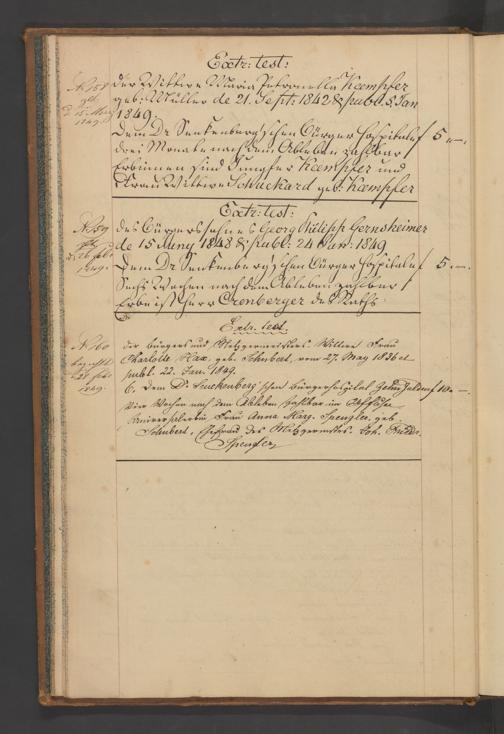 Extr: test:
N. 158
der Wittwe Maria Petronella Kaempfer
geb: Müller de 21. Sept: 1842 & publ: 5 Jan
1849.
1849.
Dem Dr Senkenbergischen Bürger Hospitale f 5 .—.
drei Monate nach dem Ableben zahlbar
Erbinnen sind Jungfer Kaempfer und
Frau Wittwe Schuckard geb: Kaempfer
Extr: test:
N. 159
des Bürgerssohnes Georg Philipp Gernsheimer
de 15 Juny 1848 & publ: 24 Jan: 1849
1849.
Dem Dr Senkenbergischen Bürger Hospitale f 5 .—.
Sechs Wochen nach dem Ableben zahlbar
Erbe ist Herr Cronberger des Raths
Extr. test.
N. 160
der Bürgers und Metzgermeisters Wittwe Frau
Charlotte Hax, geb. Schubert, vom 27. May 1836 et
publ. 22. Jan. 1849.
1849.
6. Dem Dr. Senckenberg'schen Bürgerhospital Zehn Gulden f 10 .—
Vier Wochen nach dem Ableben zahlbar
Universalerbin Frau Anna Marg. Spengler, geb.
Schubert, Ehefrau des Metzgermstrs. Joh. Friedr.
Spengler